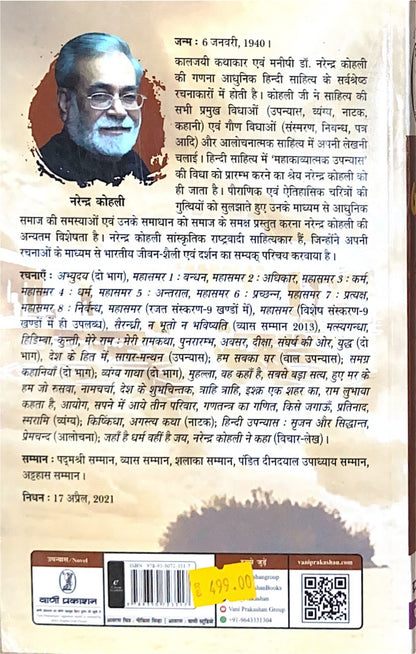 जन्म : 6 जनवरी, 1940 ।
कालजयी कथाकार एवं मनीषी डॉ. नरेन्द्र कोहली
की गणना आधुनिक हिन्दी साहित्य के सर्वश्रेष्ठ
रचनाकारों में होती है। कोहली जी ने साहित्य की
सभी प्रमुख विधाओं (उपन्यास, व्यंग्य, नाटक,
कहानी) एवं गौण विधाओं (संस्मरण, निबन्ध, पत्र
आदि) और आलोचनात्मक साहित्य में अपनी लेखनी
चलाई। हिन्दी साहित्य में 'महाकाव्यात्मक उपन्यास'
की विधा को प्रारम्भ करने का श्रेय नरेन्द्र कोहली को
ही जाता है। पौराणिक एवं ऐतिहासिक चरित्रों की
गुत्थियों को सुलझाते हुए उनके माध्यम से आधुनिक
नरेन्द्र कोहली
समाज की समस्याओं एवं उनके समाधान को समाज के समक्ष प्रस्तुत करना नरेन्द्र कोहली की
अन्यतम विशेषता है। नरेन्द्र कोहली सांस्कृतिक राष्ट्रवादी साहित्यकार हैं, जिन्होंने अपनी
रचनाओं के माध्यम से भारतीय जीवन-शैली एवं दर्शन का सम्यक् परिचय करवाया है।
रचनाएँ : अभ्युदय (दो भाग), महासमर 1 : बन्धन, महासमर 2 : अधिकार, महासमर 3 : कर्म,
महासमर 4 : धर्म, महासमर 5 : अन्तराल, महासमर 6 : प्रच्छन्न, महासमर 7 : प्रत्यक्ष,
महासमर 8 : निर्बन्ध, महासमर (रजत संस्करण-9 खण्डों में), महासमर (विशेष संस्करण-9
खण्डों में ही उपलब्ध), सैरन्ध्री, न भूतो न भविष्यति (व्यास सम्मान 2013), मत्स्यगन्धा,
हिडिम्बा, कुन्ती, मेरे राम : मेरी रामकथा, पुनरारम्भ, अवसर, दीक्षा, संघर्ष की ओर, युद्ध (दो
भाग), देश के हित में, सागर-मन्थन (उपन्यास); हम सबका घर (बाल उपन्यास); समग्र
कहानियाँ (दो भाग); व्यंग्य गाथा (दो भाग), मुहल्ला, वह कहाँ है, सबसे बड़ा सत्य, हुए मर के
हम जो रुसवा, नामचर्चा, देश के शुभचिन्तक, त्राहि त्राहि, इश्क़ एक शहर का, राम लुभाया
कहता है, आयोग, सपने में आये तीन परिवार, गणतन्त्र का गणित, किसे जगाऊँ, प्रतिनाद,
स्मरामि (व्यंग्य); किष्किंधा, अगस्त्य कथा (नाटक); हिन्दी उपन्यास : सृजन और सिद्धान्त,
प्रेमचन्द (आलोचना); जहाँ है धर्म वहीं है जय, नरेन्द्र कोहली ने कहा (विचार-लेख)।
सम्मान : पद्मश्री सम्मान, व्यास सम्मान, शलाका सम्मान, पंडित दीनदयाल उपाध्याय सम्मान,
अट्टहास सम्मान।
निधन : 17 अप्रैल, 2021
उपन्यास/Novel
वाणी प्रकाशन
ISBN
499.00
जुड़ें
Vani Prakashan Group
+91-9643331304
vaniprakashan.com